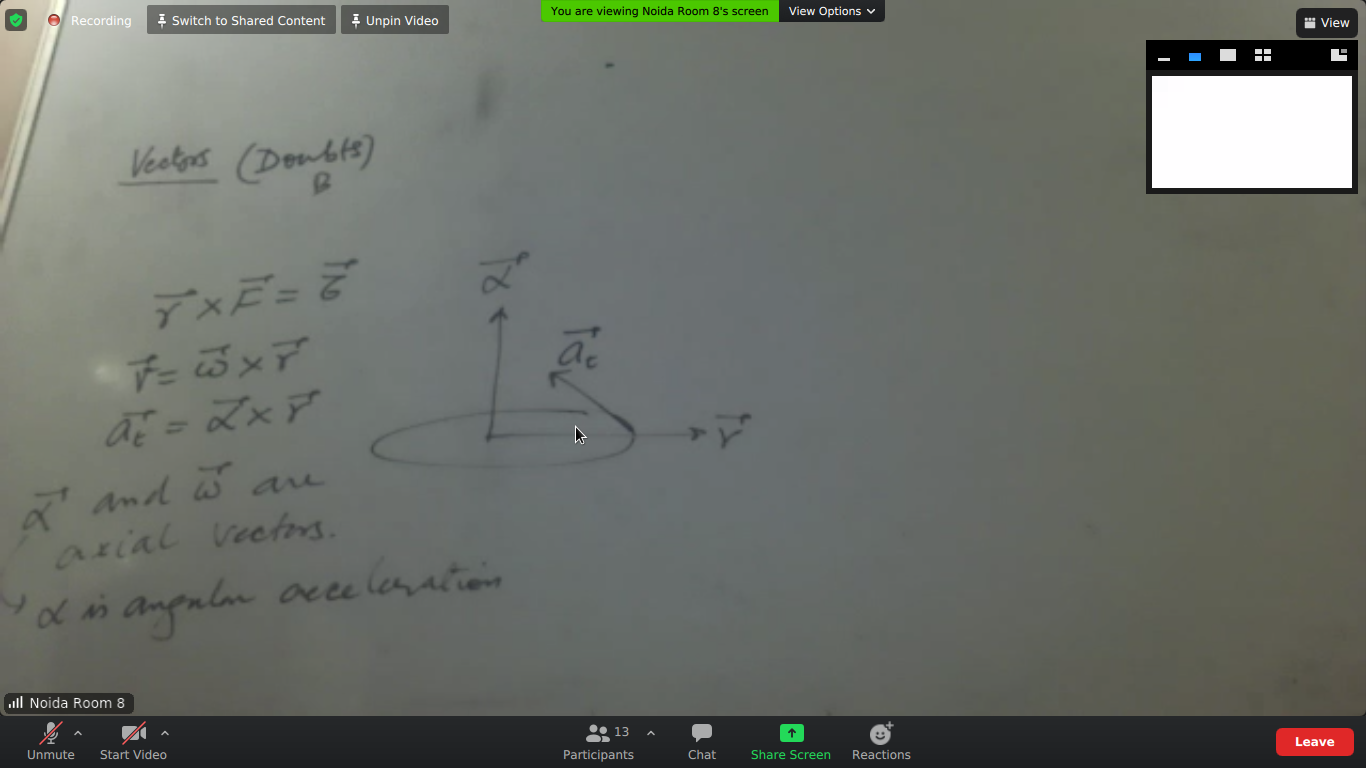 Recording
Switch to Shared Content
Unpin Video
You are viewing Noida Room 8's screen
View Options
View
Vectors (Doubts)
B
r⃗ × F⃗ = τ⃗
v⃗ = ω⃗ × r⃗
a⃗t = α⃗ × r⃗
α⃗ and ω⃗ are
axial vectors.
α is angular acceleration
α⃗
a⃗t
r⃗
Noida Room 8
Unmute
Start Video
Participants 13
Chat
Share Screen
Reactions
Leave